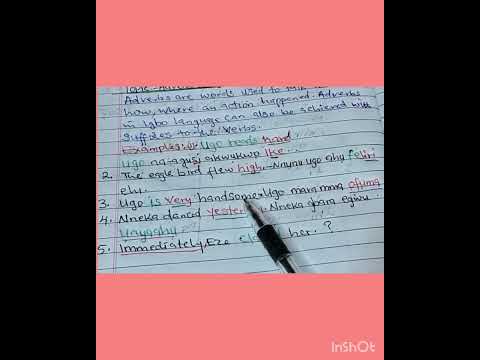 Adverbs are words used to
how, where an action happened. Adverbs
in Igbo language can also be achieved with
suffixes to the verbs.
Examples: Ugo reads hard
Ugo na-agusi akwukwo ike.
2. The eagle bird flew high - Nnunu ugo ahy feliri
elu.
3. Ugo is very handsome - Ugo mara mma ofuma
4. Nneka danced Nneka gbara egwu
Unyaahy
5. Immediately, Eze her. ?
InShOt